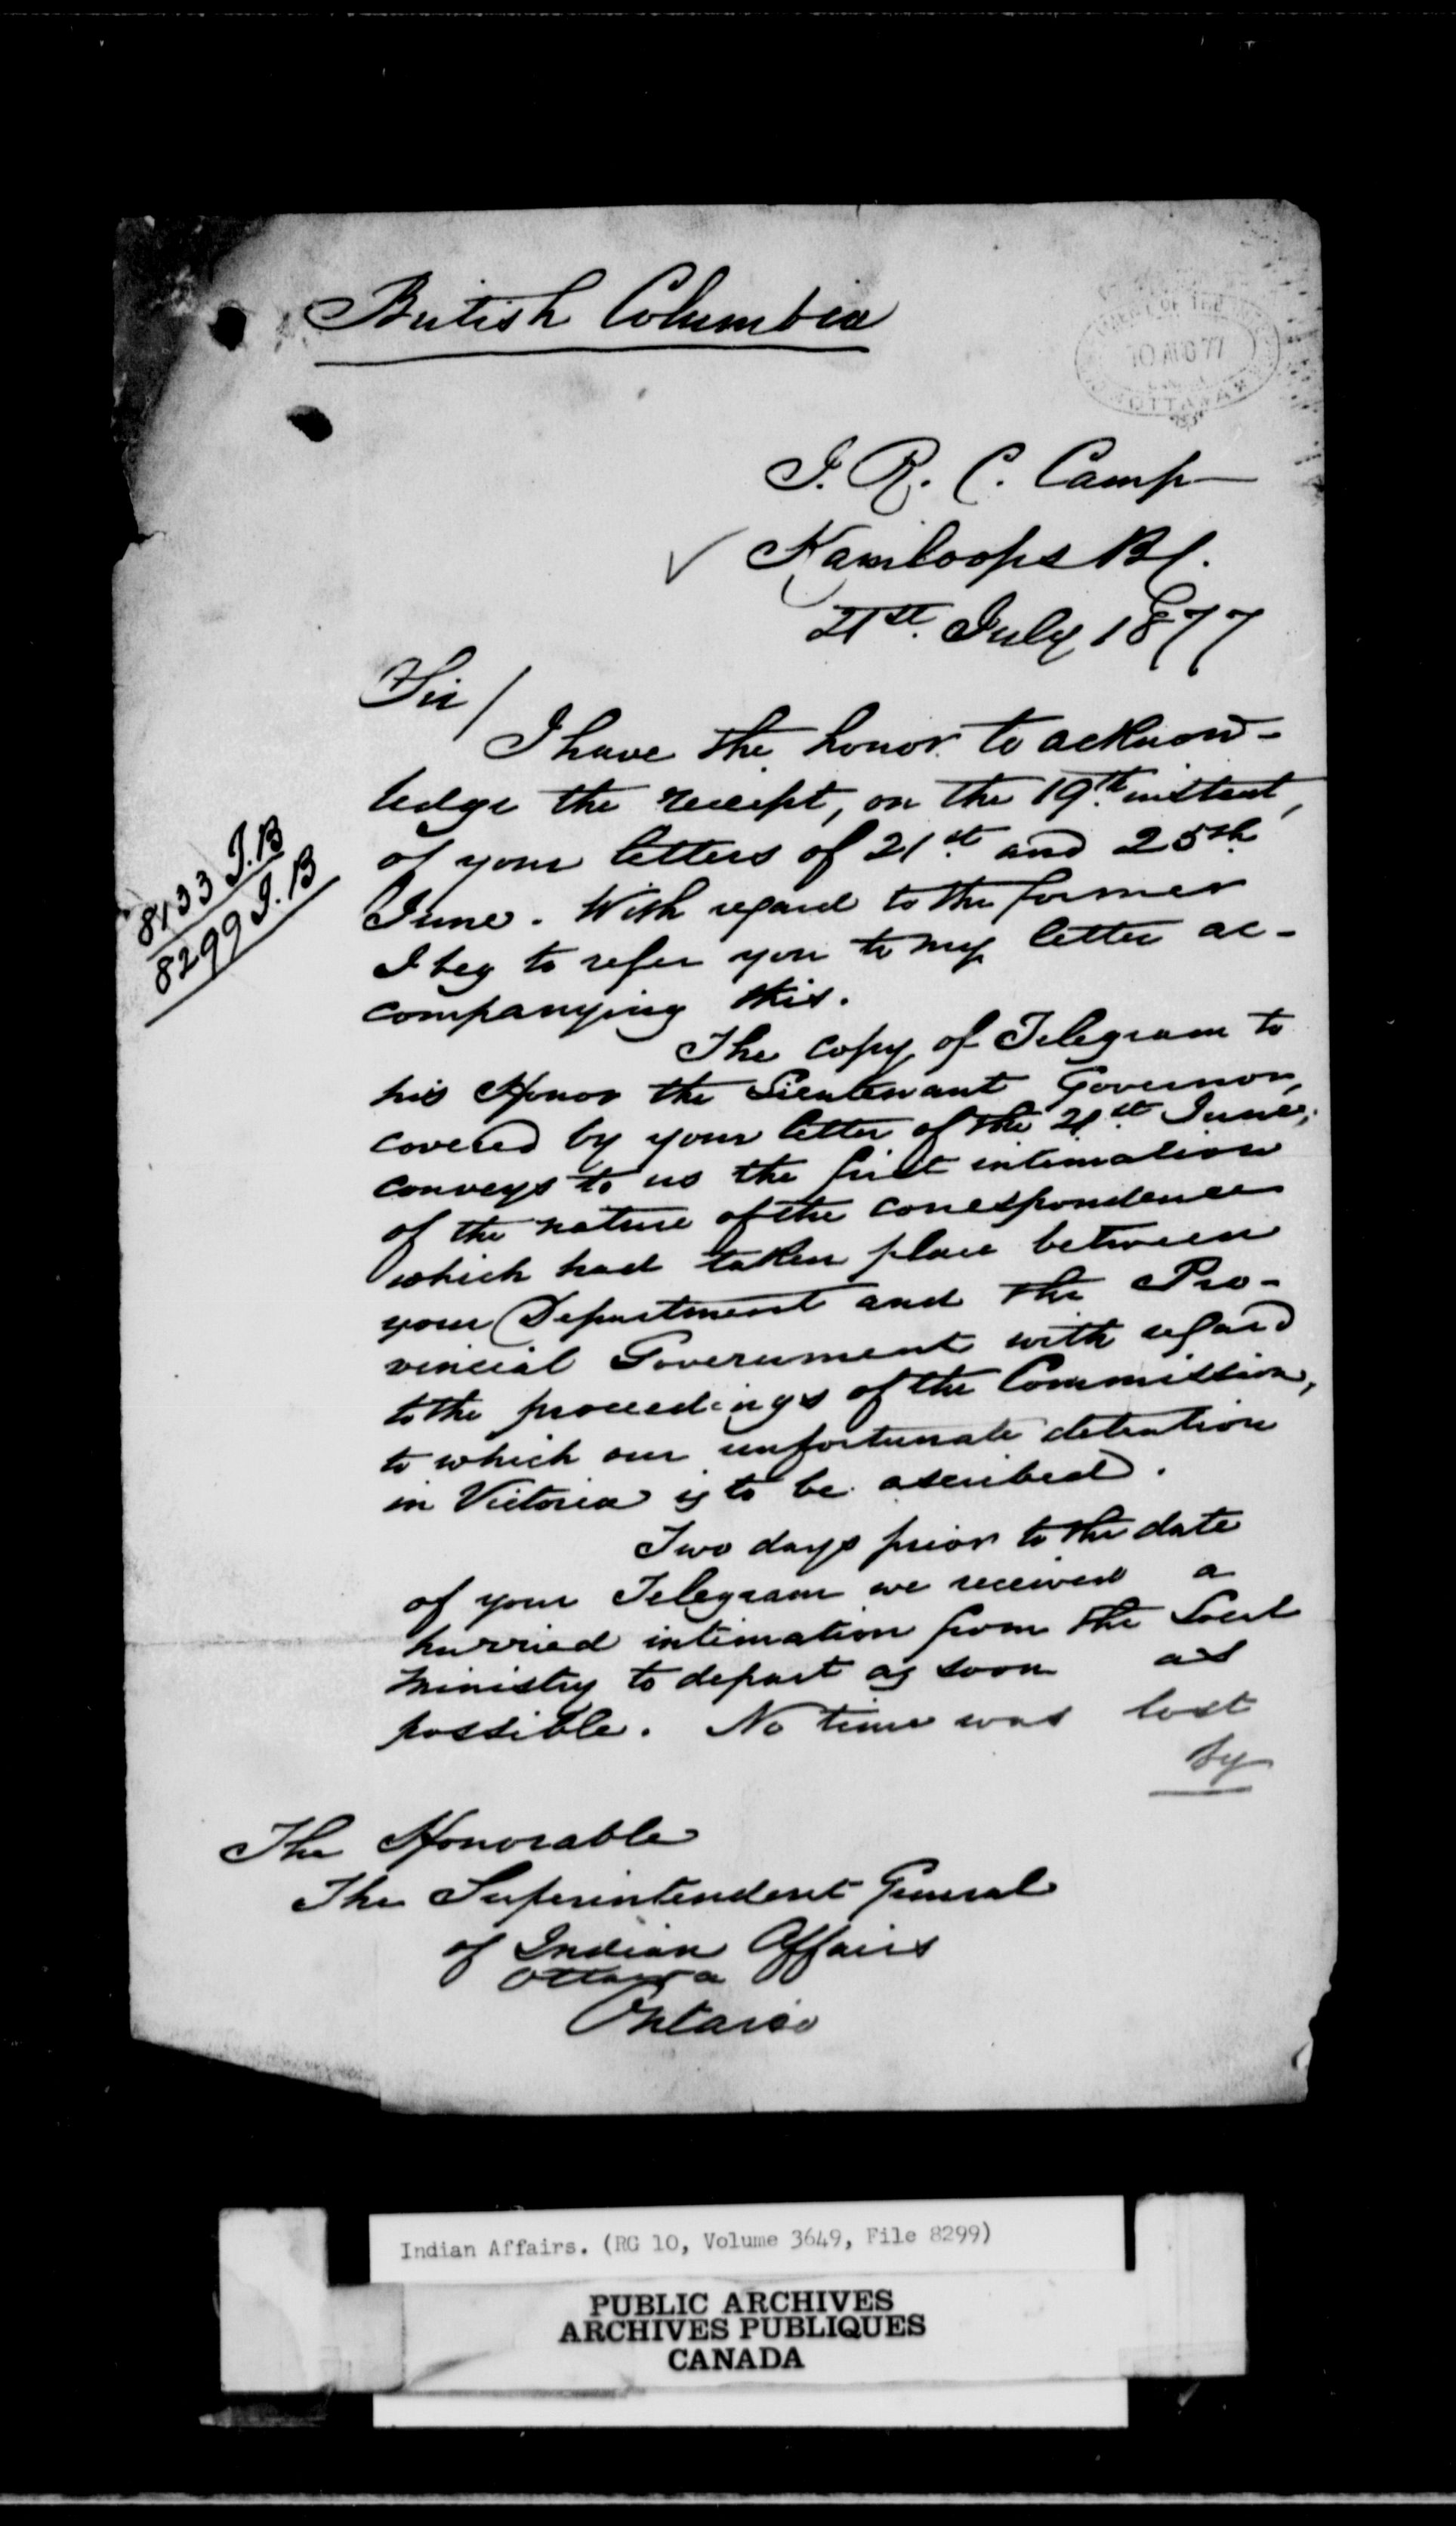 British Columbia
10 AUG 77
OTTAWA
I. R. C. Camp
Kamloops BC.
21st. July 1877
Sir/
I have the honor to acknow-
ledge the receipt, on the 19th. instant,
of your letters of 21st and 25th.
June. With regard to the former
I beg to refer you to my letter ac-
companying this.
The copy of Telegram to
his Honor the Lieutenant Governor,
covered by your letter of the 21st June,
conveys to us the first intimation
of the nature of the correspondence
which had taken place between
your Department and the Pro-
vincial Government with regard
to the proceedings of the Commission,
to which our unfortunate detention
in Victoria is to be ascribed.
Two days prior to the date
of your Telegram we received a
hurried intimation from the Local
Ministry to depart as soon as
possible. No time was lost
by
8133 I.B
8299 I.B
The Honorable
The Superintendent General
of Indian Affairs
Ottawa
Ontario
Indian Affairs. (RG 10, Volume 3649, File 8299)
PUBLIC ARCHIVES
ARCHIVES PUBLIQUES
CANADA